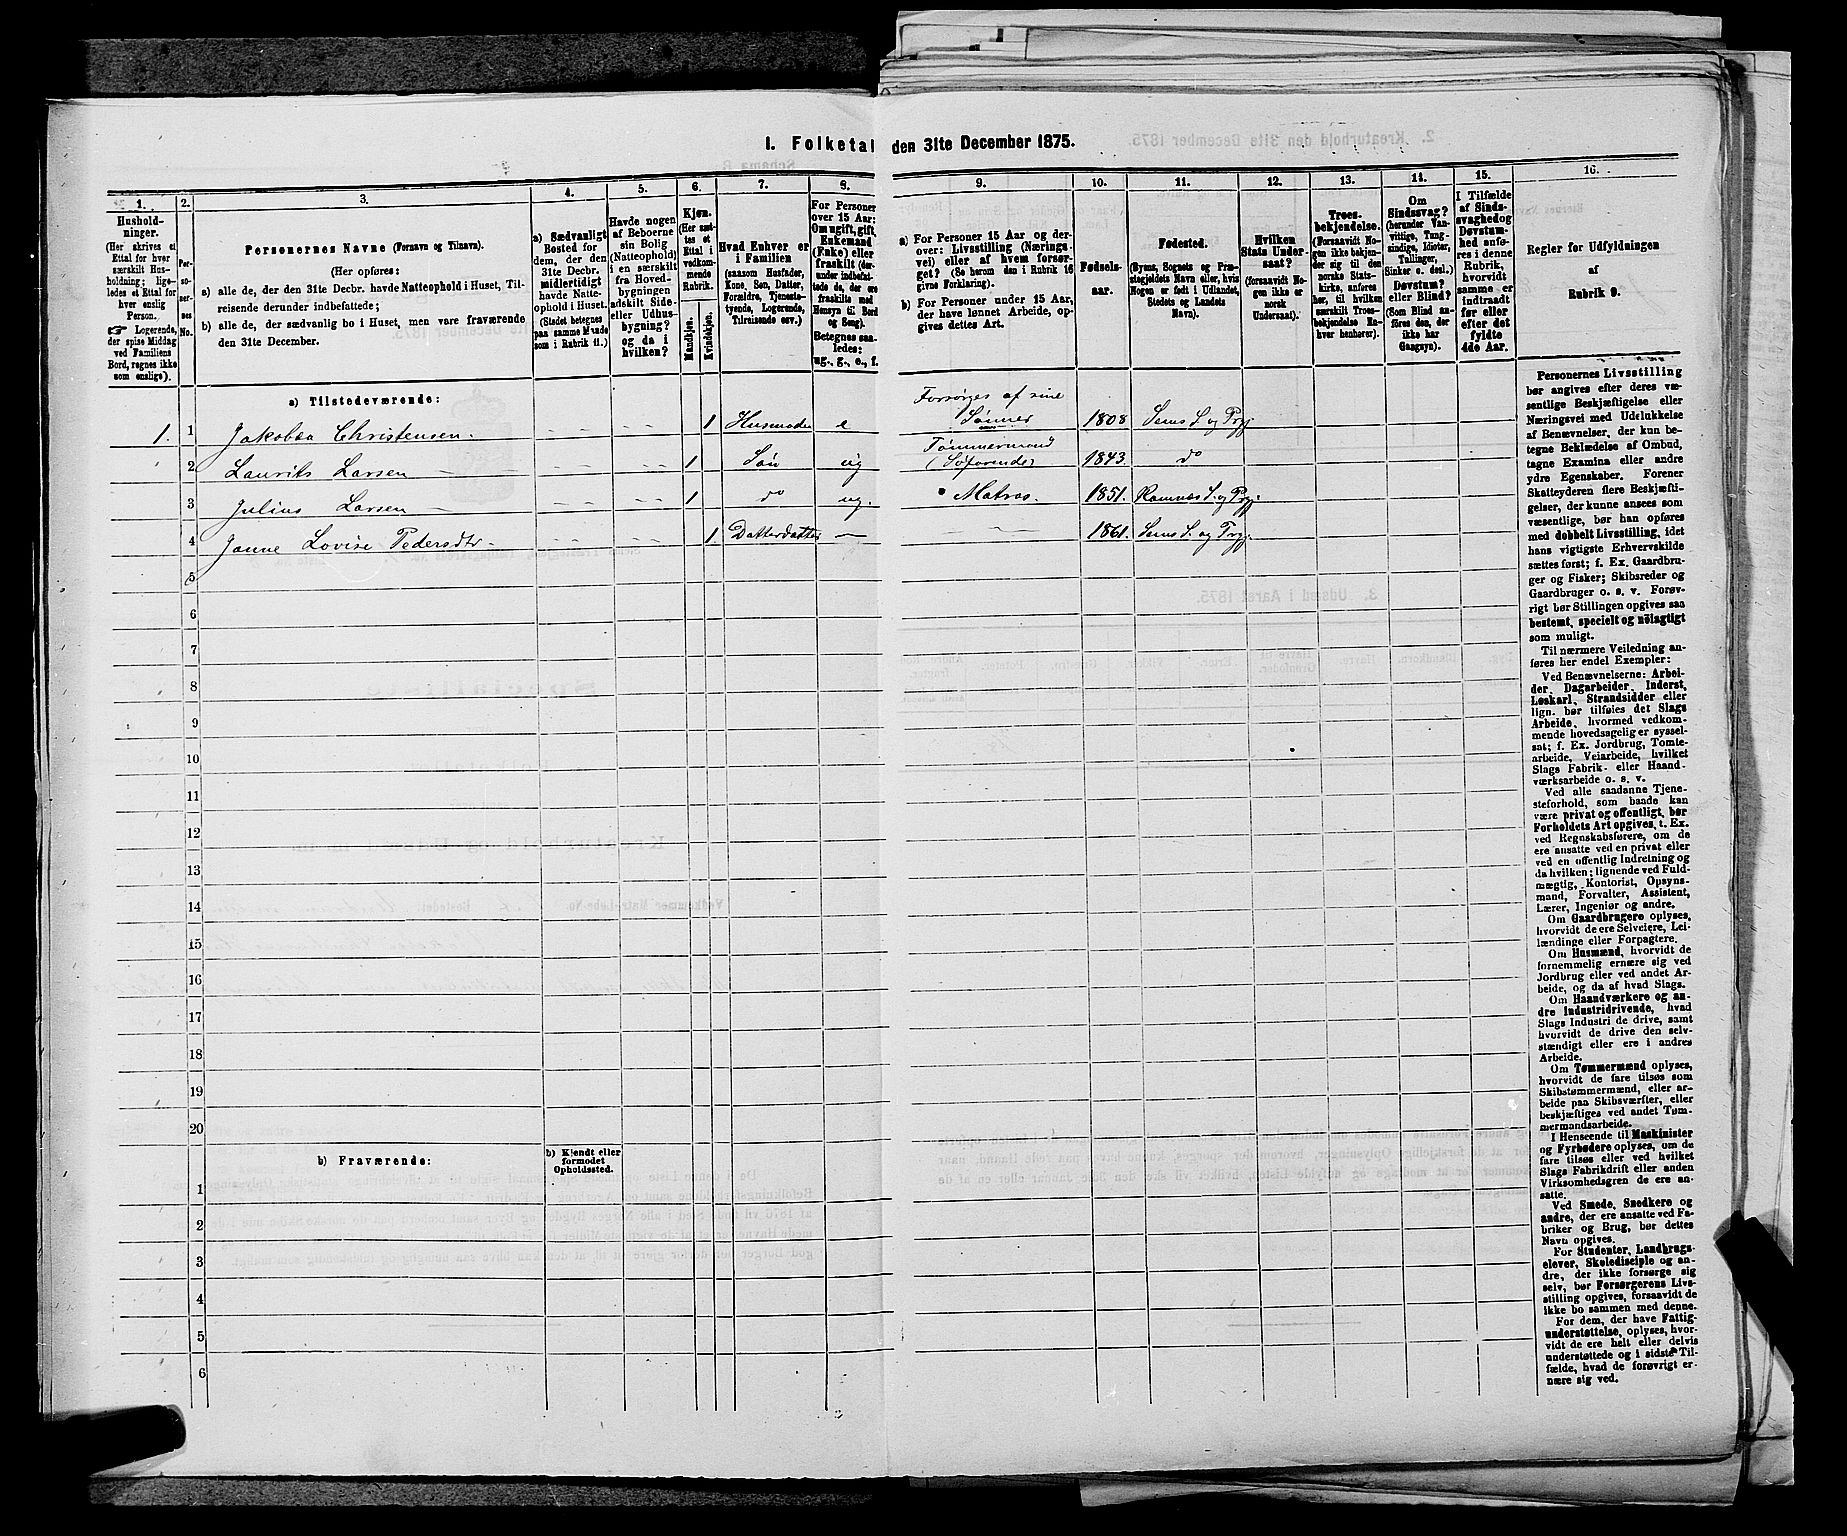 I. Folketal den 31te December 1875.
1.
Hushold-
ninger.
(Her skrives et
Ettal for hver
særskilt Hus-
holdning; lige-
ledes et Ettal for
hver enslig
Person.
☞ Logerende,
der spise Middag
ved Familiens
Bord, regnes ikke
som enslige).
2.
Per-
so-
ner-
nes
No.
3.
Personernes Navne (Fornavn og Tilnavn).
(Her opføres:
a) alle de, der den 31te Decbr. havde Natteophold i Huset, Til-
reisende derunder indbefattede;
b) alle de, der sædvanlig bo i Huset, men vare fraværende
den 31te December.
4.
a) Sædvanligt
Bosted for
dem, der den
31te Decbr.
midlertidigt
havde Natte-
ophold i Huset.
(Stedet betegnes
paa samme Maade
som i Rubrik 11.)
5.
Havde nogen
af Beboerne
sin Bolig
(Natteophold)
i en særskilt
fra Hoved-
bygningen
adskilt Side-
eller Udhus-
bygning?
og da i
hvilken?
6.
Kjøn.
(Her sæt-
tes et
Ettal i
vedkom-
mende
Rubrik.
Mandkjøn.
Kvindekjøn.
7.
Hvad Enhver er
i Familien
(saasom Husfader,
Kone, Søn, Datter,
Forældre, Tjeneste-
tyende, Logerende,
Tilreisende osv.)
8.
For Personer
over 15 Aar:
Om ugift, gift,
Enkemand
(Enke) eller
fraskilt (der-
under indbefat-
tede de, der ere
fraskilte med
Hensyn til Bord
og Seng).
Betegnes saa-
ledes:
ug., g., e., f.
9.
a) For Personer 15 Aar og der-
over: Livsstilling (Nærings-
vei) eller af hvem forsør-
get? (Se herom den i Rubrik 16
givne Forklaring).
b) For Personer under 15 Aar,
der have lønnet Arbeide, op-
gives dettes Art.
10.
Fødsels-
aar.
11.
Fødested.
(Byens, Sognets og Præ-
stegjeldets Navn eller, hvis
Nogen er født i Udlandet,
Stedets og Landets
Navn).
12.
Hvilken
Stats Under-
saat?
(forsaavidt No-
gen ikke er
norsk
Undersaat).
13.
Troes-
bekjendelse.
(Forsaavidt No-
gen ikke bekjen-
der sig til den
norske Stats-
kirke, anføres
her, til hvilken
særskilt Troes-
bekjendelse En-
hver henhører).
14.
Om
Sindssvag?
(herunder Van-
vittige, Tung-
sindige, Idioter,
Tullinger,
Sinker o. desl.)
Døvstum?
eller Blind?
(Som Blind an-
føres den, der
ikke har
Gangsyn).
15.
I Tilfælde
af Sinds-
svaghed og
Døvstum-
hed anfø-
res i denne
Rubrik,
hvorvidt
samme er
indtraadt
før eller
efter det
fyldte
4de Aar.
16.
Regler for Udfyldningen
af
Rubrik 9.
a) Tilstedeværende:
1. 1 Jakobea Christensen. — — — — 1 Husmoder e Forsørges af sine Sønner 1808 Sems S. og Prgj
2 Laurits Larsen — — — — — 1 Søn ug Tømmermand (Søfarende) 1843. do
3 Julius Larsen — — — — — 1 do ug. Matros. 1851. Ramnæs S. og Prgj.
4 Janne Lovise Pedersdtr — — — — 1. Datterdatter — — — 1861. Sems S. og Prgj.
5
6
7
8
9
10
11
12
13
14
15
16
17
18
19
20
b) Fraværende:
b) Kjendt eller
formodet
Opholdssted.
1
2
3
4
5
6
Personernes Livsstilling
bør angives efter deres væ-
sentlige Beskjæftigelse eller
Næringsvei med Udelukkelse
af Benævnelser, der kun be-
tegne Beklædelse af Ombud,
tagne Examina eller andre
ydre Egenskaber. Forener
Skatteyderen flere Beskjæfti-
gelser, der kunne ansees som
væsentlige, bør han opføres
med dobbelt Livsstilling, idet
hans vigtigste Erhvervskilde
sættes først; f. Ex. Gaardbru-
ger og Fisker; Skibsreder og
Gaardbruger o. s. v. Forøv-
rigt bør Stillingen opgives saa
bestemt, specielt og nöiagtigt
som muligt.
Til nærmere Veiledning an-
føres her endel Exempler:
Ved Benævnelserne: Arbei-
der, Dagarbeider, Inderst,
Løskarl, Strandsidder eller
lign. bør tilføies det Slags
Arbeide, hvormed vedkom-
mende hovedsagelig er syssel-
sat; f. Ex. Jordbrug, Tomte-
arbeide, Veiarbeide, hvilket
Slags Fabrik- eller Haand-
værksarbeide o. s. v.
Ved alle saadanne Tjene-
steforhold, som baade kan
være privat og offentligt, bør
Forholdets Art opgives, t. Ex.
ved Regnskabsførere, om de
ere ansatte ved en privat eller
ved en offentlig Indretning og
da hvilken; lignende ved Fuld-
mægtig, Kontorist, Opsyns-
mand, Forvalter, Assistent,
Lærer, Ingeniør og andre.
Om Gaardbrugere oplyses,
hvorvidt de ere Selveiere, Lei-
lændinge eller Forpagtere.
Om Husmænd, hvorvidt de
fornemmelig ernære sig ved
Jordbrug eller ved andet Ar-
beide, og da af hvad Slags.
Om Haandværkere og an-
dre Industridrivende, hvad
Slags Industri de drive, samt
hvorvidt de drive den selv-
stændigt eller ere i andres
Arbeide.
Om Tømmermænd oplyses,
hvorvidt de fare tilsøs som
Skibstømmermænd, eller ar-
beide paa Skibsværfter, eller
beskjæftiges ved andet Tøm-
mermandsarbeide.
I Henseende til Maskinister
og Fyrbødere oplyses, om de
fare tilsøs eller ved hvilket
Slags Fabrikdrift eller anden
Virksomhedsgren de ere an-
satte.
Ved Smede, Snedkere og
andre, der ere ansatte ved Fa-
briker og Brug, bør dettes
Navn opgives.
For Studenter, Landbrugs-
elever, Skoledisciple og an-
dre, der ikke forsørge sig
selv, bør Forsørgerens Livs-
stilling opgives, forsaavidt de
ikke bo sammen med denne.
For dem, der have Fattig-
understøttelse, oplyses, hvor-
vidt de ere helt eller delvis
understøttede og i sidste Til-
fælde, hvad de forøvrigt er-
nære sig ved.